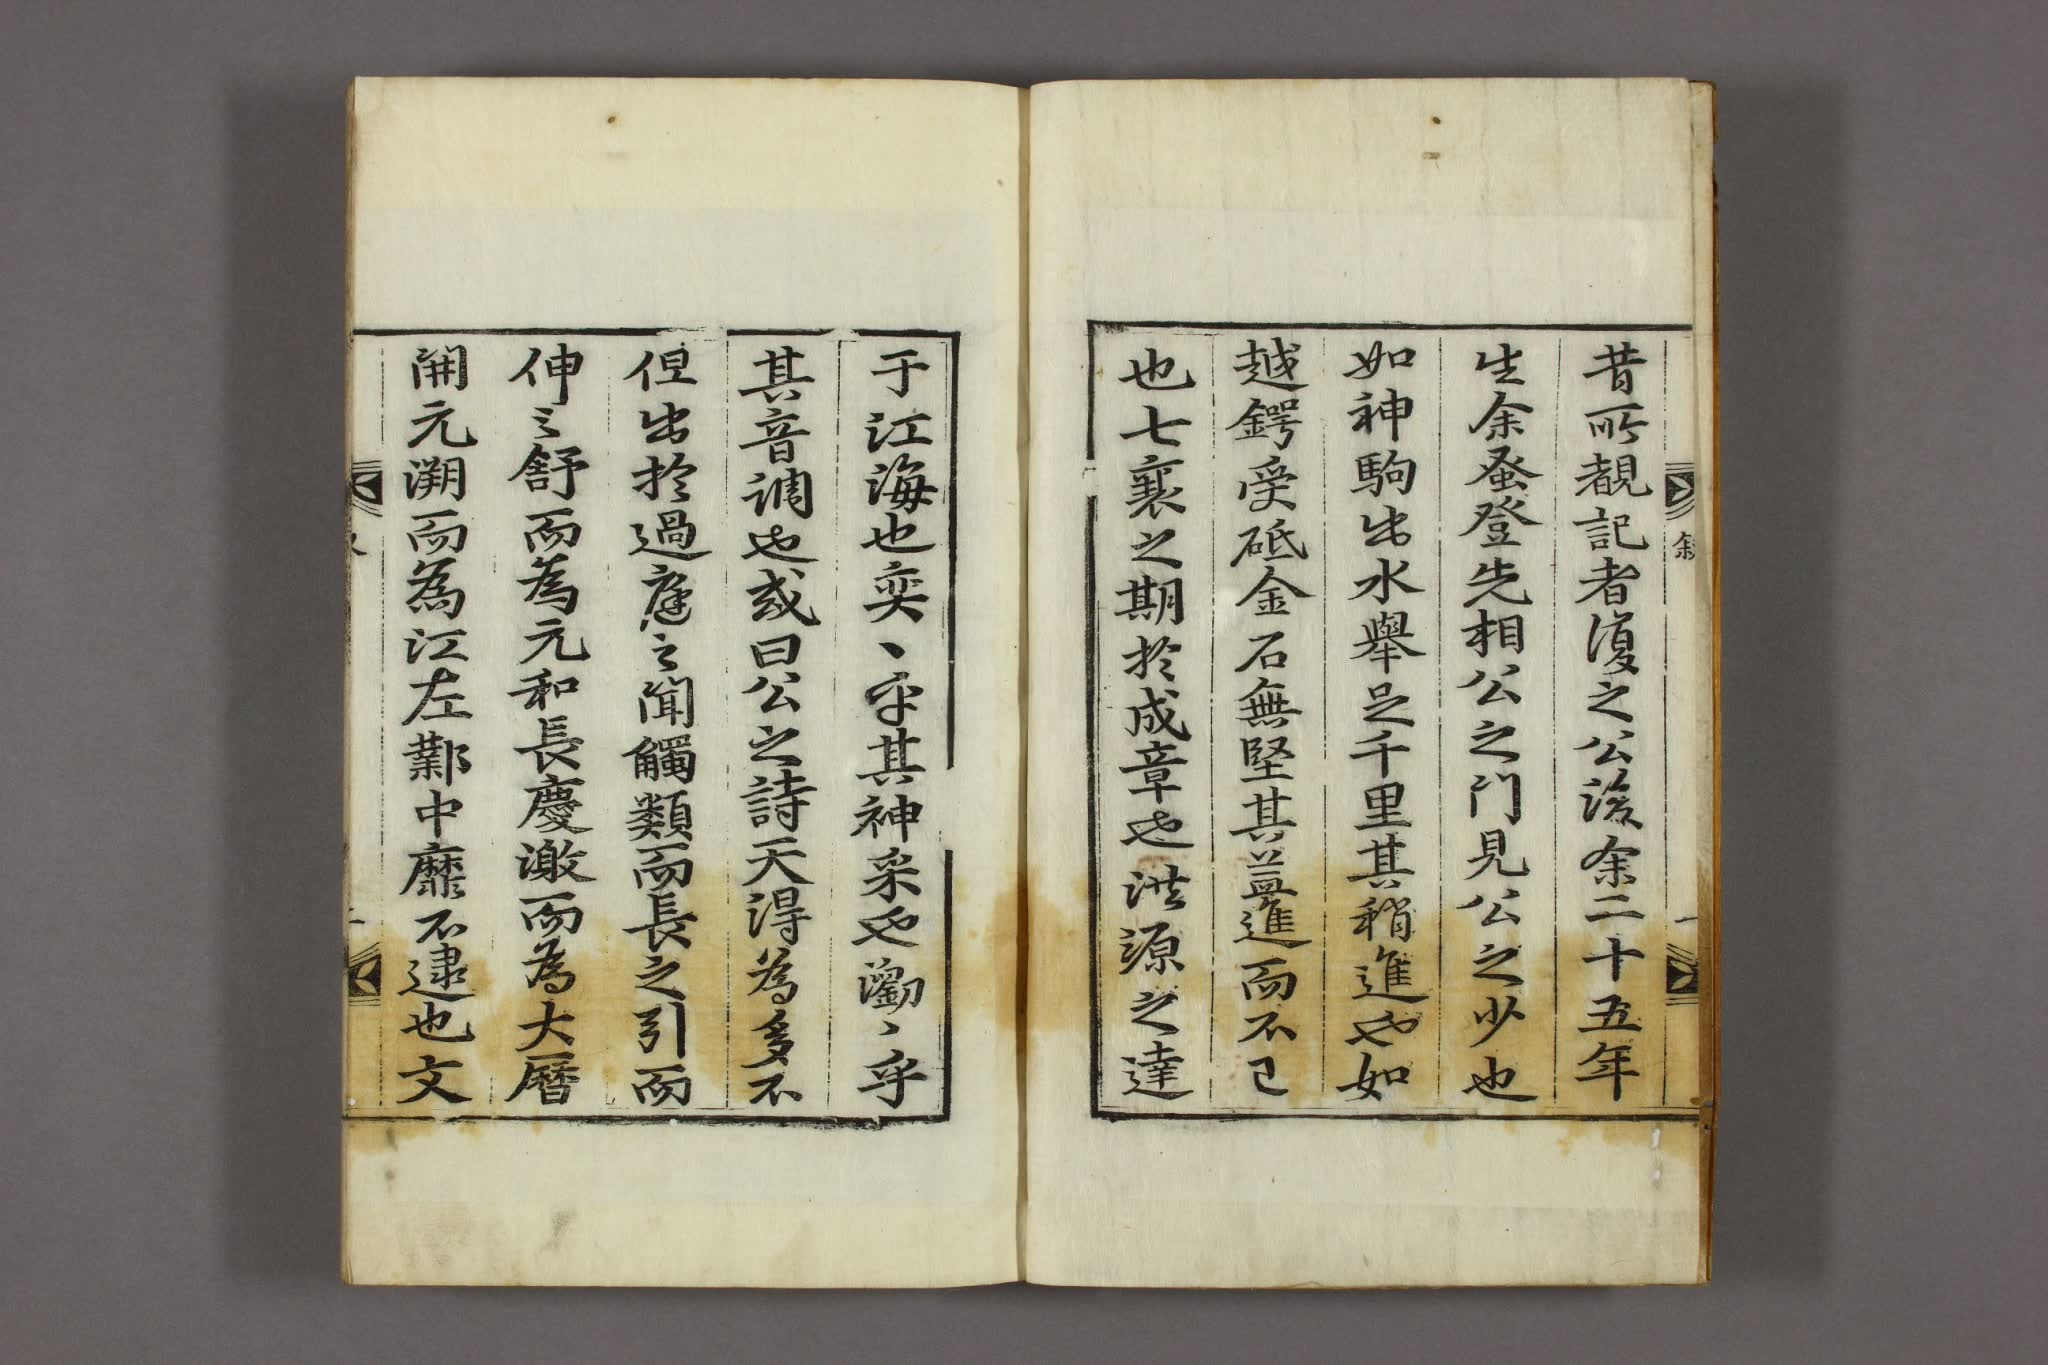 昔所覩記者復之公後余二十五年
生余蚤登先相公之門見公之少也
如神駒出水舉足千里其稍進也如
越鍔受砥金石無堅其益進而不已
也七襄之期於成章也洪源之達
敘
一
于江海也奕〻乎其神采也瀏〻乎
其音調也或曰公之詩天得為多不
但出於過庭之聞觸類而長之引而
伸之舒而為元和長慶激而為大曆
開元溯而為江左鄴中靡不逮也文